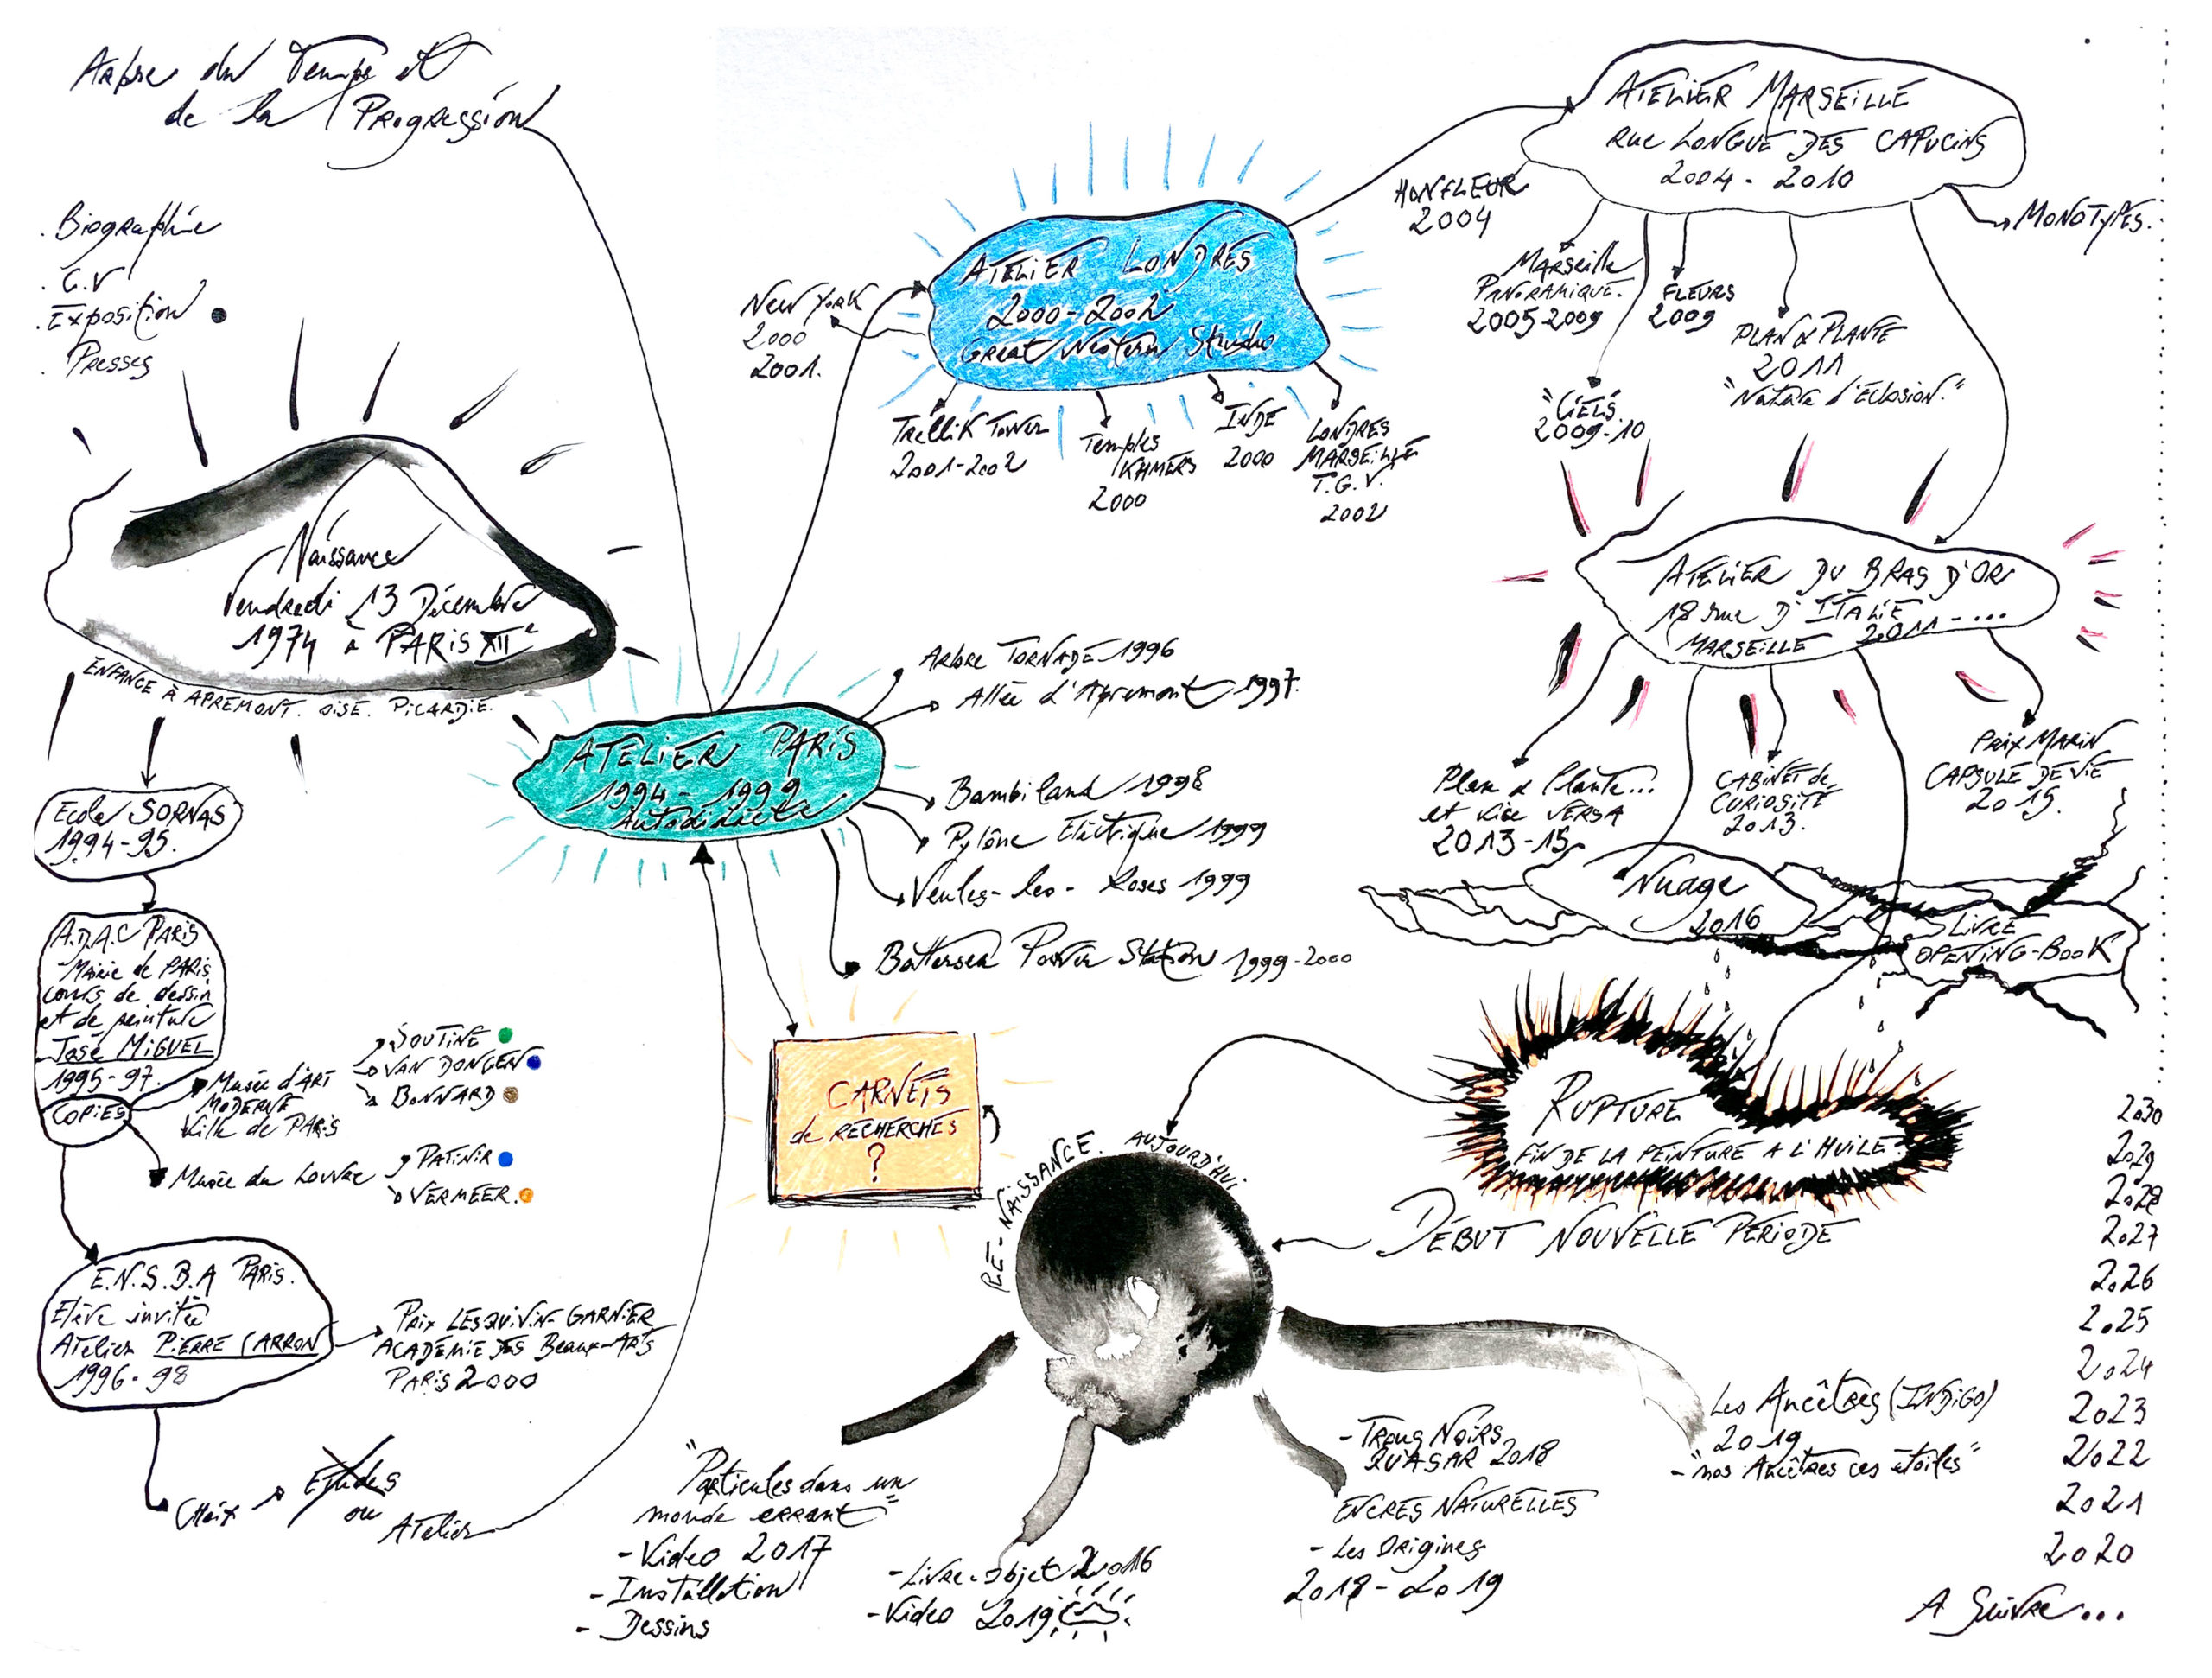 Arbre du Temps et
de la Progression
. Biographie
. C.V
. Exposition
. Presses
Naissance
Vendredi 13 Décembre
1974 à PARIS XIIe
ENFANCE À APREMONT. OISE. PICARDIE.
Ecole SORNAS
1994-95.
A.D.A.C PARIS
Mairie de PARIS
cours de dessin
et de peinture
José MIGUEL
1995-97.
COPIES
Musée d'ART
MODERNE
Ville de PARIS
SOUTINE
VAN DONGEN
BONNARD
Musée du Louvre
PATINIR
VERMEER.
E.N.S.B.A PARIS.
Elève invitée
Atelier PIERRE CARRON
1996-98
Prix LESQUIVIN-GARNIER
ACADÉMIE DES Beaux-Arts
PARIS 2000
Choix
Etudes
ou
Atelier
ATELIER PARIS
1994-1999
Autodidacte
Arbre TORNADE 1996
Allée d'Apremont 1997.
Bambiland 1998
Pylône Electrique 1999
Veules-les-Roses 1999
Battersea Power Station 1999-2000
CARNETS
de RECHERCHES
?
ATELIER LONDRES
2000-2002
Great Western Studio
New York
2000
2001.
Trellik Tower
2001-2002
Temples
KHMERS
2000
INDE
2000
LONDRES
MARSEILLE
T.G.V.
2002
ATELIER MARSEILLE
RUE LONGUE DES CAPUCINS
2004-2010
HONFLEUR
2004
Marseille
PANORAMIQUE.
2005-2009
FLEURS
2009
"CIELS"
2009-10
PLAN & PLANTE
2011
"Natura d'Eclosion."
MONOTYPES.
ATELIER DU BRAS D'OR
18 rue D'ITALIE
MARSEILLE 2011-...
Plan & Plante...
et vice VERSA
2013-15
CABINET de
CURIOSITÉ
2013.
PRIX MARIN
CAPSULE DE VIE
2015.
Nuage
2016
LIVRE
OPENING-BOOK
RUPTURE
FIN DE LA PEINTURE A L'HUILE.
DÉBUT NOUVELLE PÉRIODE
RE-NAISSANCE. AUJOURD'HUI
"Particules dans un
monde errant"
- Video 2017
- Installation
- Dessins
- Livre-objet 2016
- Video 2019
- TROUS NOIRS
QUASAR 2018
ENCRES NATURELLES
- Les Origines
2018-2019
Les Ancêtres (INDIGO)
2019
- "nos Ancêtres ces étoiles"
2030
2029
2028
2027
2026
2025
2024
2023
2022
2021
2020
A Suivre...